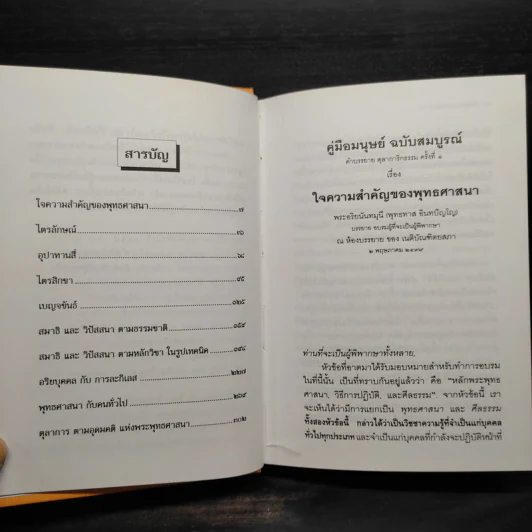 สารบัญ
ใจความสำคัญของพุทธศาสนา ๗
ไตรลักษณ์
อุปาทานสี่
ไตรสิกขา
เบญจขันธ์ ๑๒๕
สมาธิ และ วิปัสสนา ตามธรรมชาติ
สมาธิ และ วิปัสสนา ตามหลักวิชา ในรูปเทคนิค
อริยบุคคล กับ การละกิเลส
พุทธศาสนา กับคนทั่วไป
ตุลาการ ตามอุดมคติ แห่งพระพุทธศาสนา ๓๐๒
คู่มือมนุษย์ ฉบับสมบูรณ์
คำบรรยาย ตุลาการิกธรรม ครั้งที่ ๑
เรื่อง
ใจความสำคัญของพุทธศาสนา
พระอริยนันทมุนี (พุทธทาส อินทปัญโญ)
บรรยาย อบรมผู้ที่จะเป็นผู้พิพากษา
ณ ห้องบรรยาย ของ เนติบัณฑิตยสภา
๒ พฤษภาคม ๒๔๙๙
ท่านที่จะเป็นผู้พิพากษาทั้งหลาย,
หัวข้อที่อาตมาได้รับมอบหมายสำหรับทำการอบรม
ในที่นี้นั้น เป็นที่ทราบกันอยู่แล้วว่า คือ "หลักพระพุทธ
ศาสนา, วิธีการปฏิบัติ, และศีลธรรม". จากหัวข้อนี้ เรา
จะเห็นได้ว่ามีการแยกเป็น พุทธศาสนา และ ศีลธรรม
ทั้งสองหัวข้อนี้ กล่าวได้ว่าเป็นวิชชาความรู้ที่จำเป็นแก่บุคคล
ทั่วไปทุกประเภท และจำเป็นแก่บุคคลที่กำลังจะปฏิบัติหน้าที่